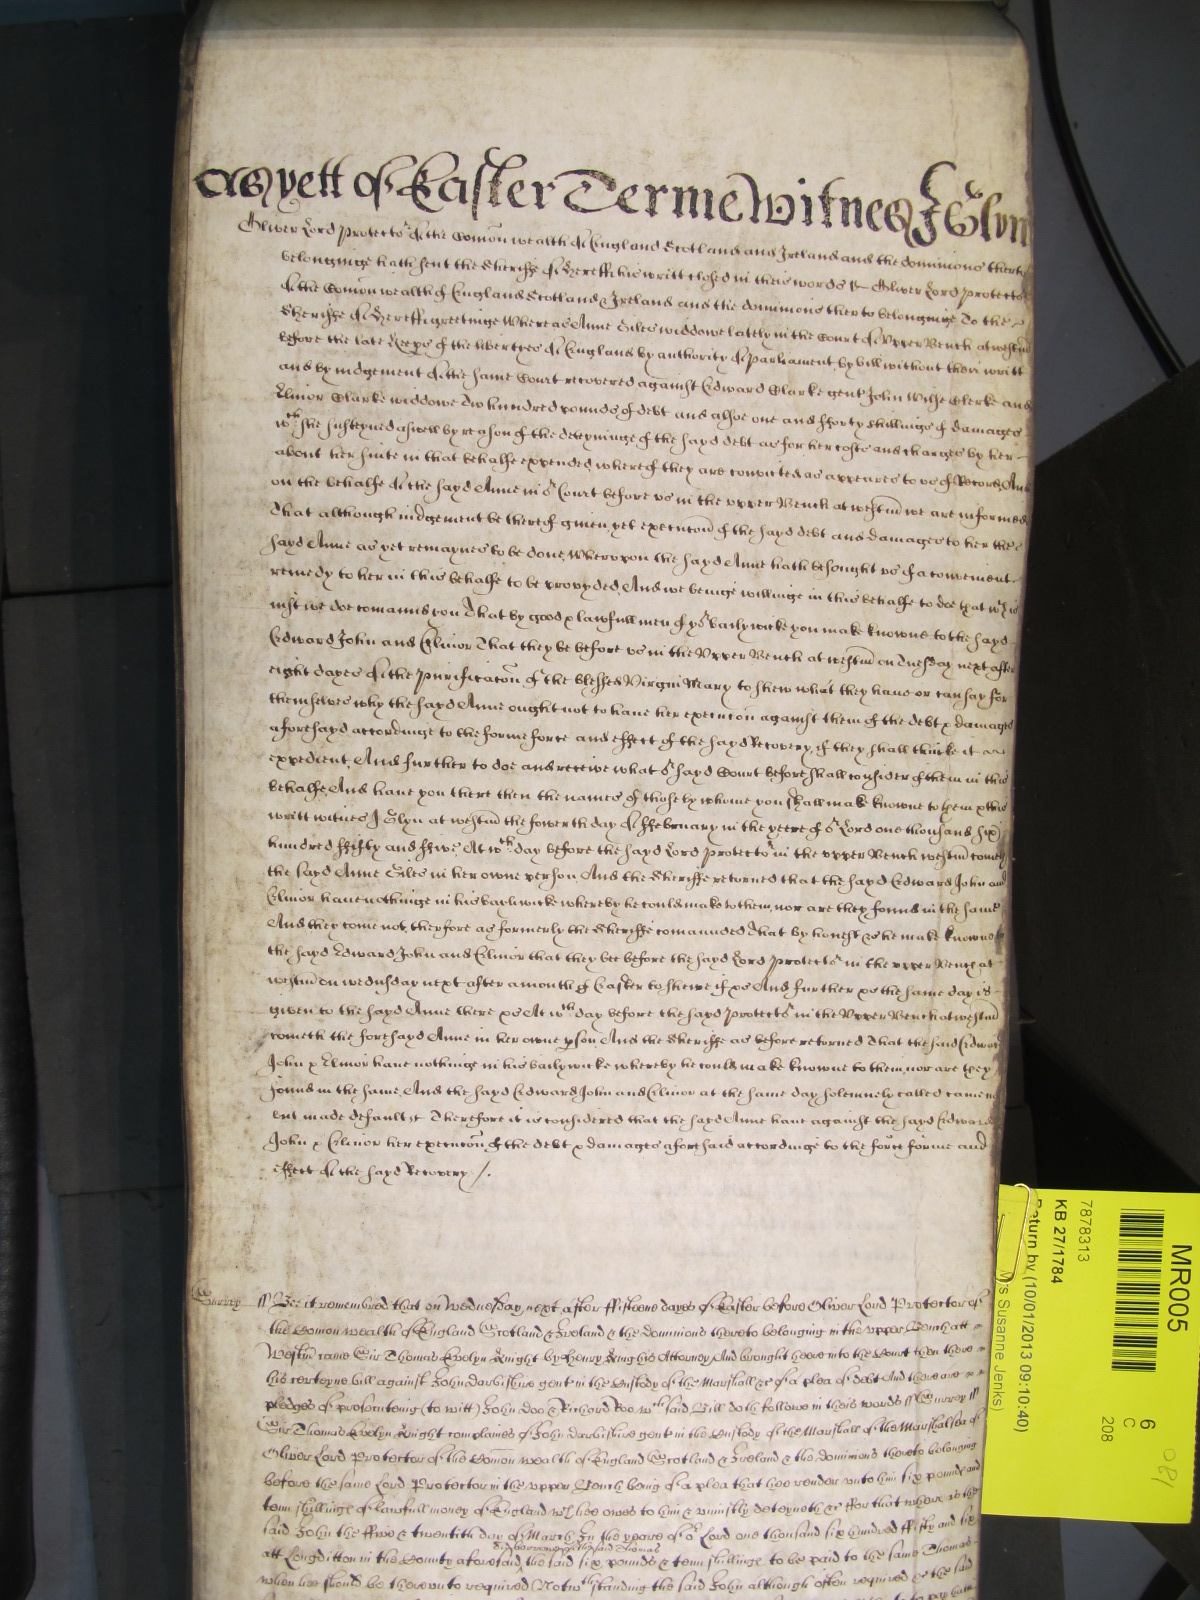 As yett of Easter Terme Witnes J Glyn
Oliver Lord Protector of the Comon wealth of England Scotland and Ireland and the dominions therto
belonginge hath sent the Sheriffe of writt closed in theis words Oliver Lord protector
of the Comon wealth of England Scotland & Ireland and the dominions therto belonginge To the
Sheriffe of greetinge Whereas Anne Giles widdowe lately in the Court of Upper Bench at westm
before the late Keeps of the libertyes of England by authority of parliament by bill without their writt
and by iudgement of the same Court recovered against Edward Clarke gent John Clerke and
Elinor Clarke widdowe Two hundred pounds of debt and alsoe one and fforty shillings of damages
wch she susteyned aswell by reason of the deteyninge of the sayd debt as for her costs and charges by her
about her suite in that behalfe expended, whereof they are convicted as appeares to us of Record, And
on the behalfe of the sayd Anne in or Court before us in the upper Bench at westm we are informed
That although iudgement be thereof given, yet execucon of the sayd debt and damages to her the
sayd Anne as yet remaynes to be done, Whereupon the sayd Anne hath besought us of a convenient
remedy to her in this behalfe to be provyded, And we beinge willinge in this behalfe to doe that wch is
iust we doe comand you That by good & lawfull men of yor bailywicke you make knowne to the sayd
Edward John and Elinor That they be before us in the Upper Bench at westm on Tuesday next after
eight dayes of the purificacon of the blessed Virgin Mary to shew what they have or can say for
themselves why the sayd Anne ought not to have her execucon against them of the debt & damages
aforesayd accordinge to the forme force and effect of the sayd Recovery, if they shall thincke it
expedient, And further to doe and receive what or sayd Court before shall consider of them in this
behalfe, And have you there then the names of those by whome you shall make knowne to them & this
writt witnes J Glyn at westm the fowerth day of ffebruary in the yeere of or Lord one thousand six
hundred ffifty and ffive, At wch day before the sayd Lord protector in the upper Bench westm cometh
the sayd Anne Giles in her owne person And the Sheriffe returned that the sayd Edward John and
Elinor have nothinge in his baylywicke whereby he could make to them, nor are they found in the same
And they come not, therfore as formerly the Sheriffe comanded That by honest &c he make knowne to
the sayd Edward John and Elinor that they bee before the sayd Lord Protector in the upper Bench at
westm on wednesday next after a month of Easter to shewe if &c And further &c the same day is
given to the sayd Anne there &c At wch day before the sayd protector in the Upper Bench at westm
cometh the foresayd Anne in her owne pson And the Sheriffe as before returned That the said Edward
John & Elinor have nothinge in his bailywicke whereby he could make knowne to them, nor are they
found in the same, And the sayd Edward John and Elinor at the same day solemnely called came n
but made default Therefore it is considered that the sayd Anne have against the sayd Edward
John & Elinor her execucon of the debt & damages aforesaid accordinge to the force forme and
effect of the sayd Recovery /.
Surrey ss Bee it remembred that on Wednesday next after ffifteene dayes of Easter before Oliver Lord Protector of
the Comon wealth of England Scotland & Ireland & the dominions thereto belonging in the upper Bench att
Westm came Sir Thomas Evelyn Knight by Henry King his Attorney And brought heere into the Court then there
his certeyne bill against John Darbishire gent in the Custody of the Marshall &c of a plea of debt And there are
pledges of prosecuteing (to witt) John Doo & Richard Roo wch said Bill doth followe in theis words ss Surrey ss
Sir Thomas Evelyn Knight complaines of John Darbishire gent in the Custody of the Marshall of the Marshallsea of
Oliver Lord Protector of the Comon wealth of England Scotland & Ireland & the dominions thereto belonging
before the same Lord Protector in the upper Bench being of a plea that hee render unto him six pounds and
tenn shillings of lawfull money of England wch hee owes to him & uniustly deteyneth &c ffor that whereas the
said John the ffive & twentith day of March In the yeare of or Lord one thousand six hundred ffifty and six
did borrow of the said Thomas
att Longditton in the County aforesaid the said six pounds & tenn shillings to be paid to the same Thomas
when hee should be thereunto required Notwthstanding the said John although often required &c the said
MR005
6
C
208
7878313
KB 27/1784
Return by (10/01/2013 09:10:40)
Mrs Susanne Jenks)